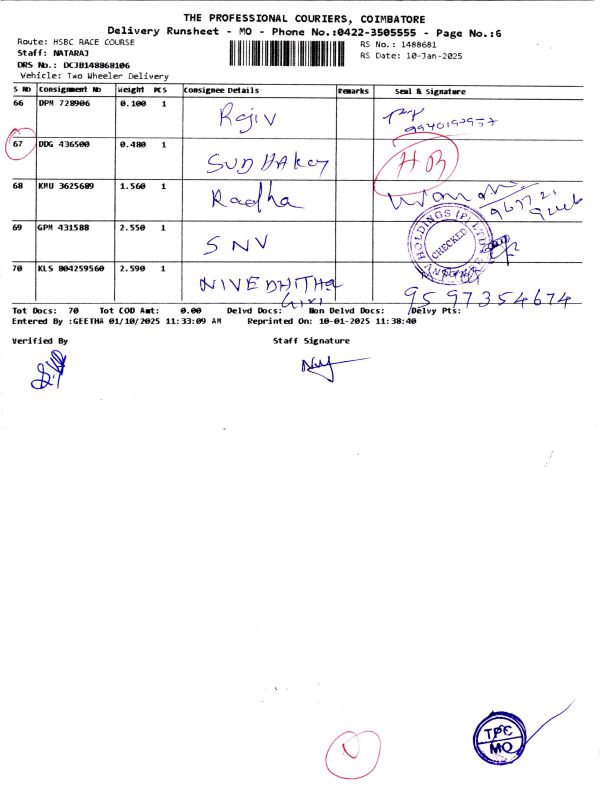 THE PROFESSIONAL COURIERS, COIMBATORE
Delivery Runsheet - MO - Phone No.:0422-3505555 - Page No.:6
Route: HSBC RACE COURSE
RS No.: 1488681
Staff: NATARAJ
RS Date: 10-Jan-2025
DRS No.: DCJB148868106
Vehicle: Two Wheeler Delivery
S No Consignment No Weight PCS Consignee Details Remarks Seal & Signature
66 DPM 728906 0.100 1 Rajiv
67 DDG 436500 0.480 1 SUDHAKAr HB
68 KMU 3625689 1.560 1 Radha
69 GPM 431588 2.550 1 SNV
HOLDINGS (P) LTD
CHECKED
70 KLS 804259560 2.590 1 NIVEDHITHA
Giri 9597354674
Tot Docs: 70 Tot COD Amt: 0.00 Delvd Docs: Non Delvd Docs: Delvy Pts:
Entered By :GEETHA 01/10/2025 11:33:09 AM Reprinted On: 10-01-2025 11:38:40
Verified By Staff Signature
N
TPC
MO